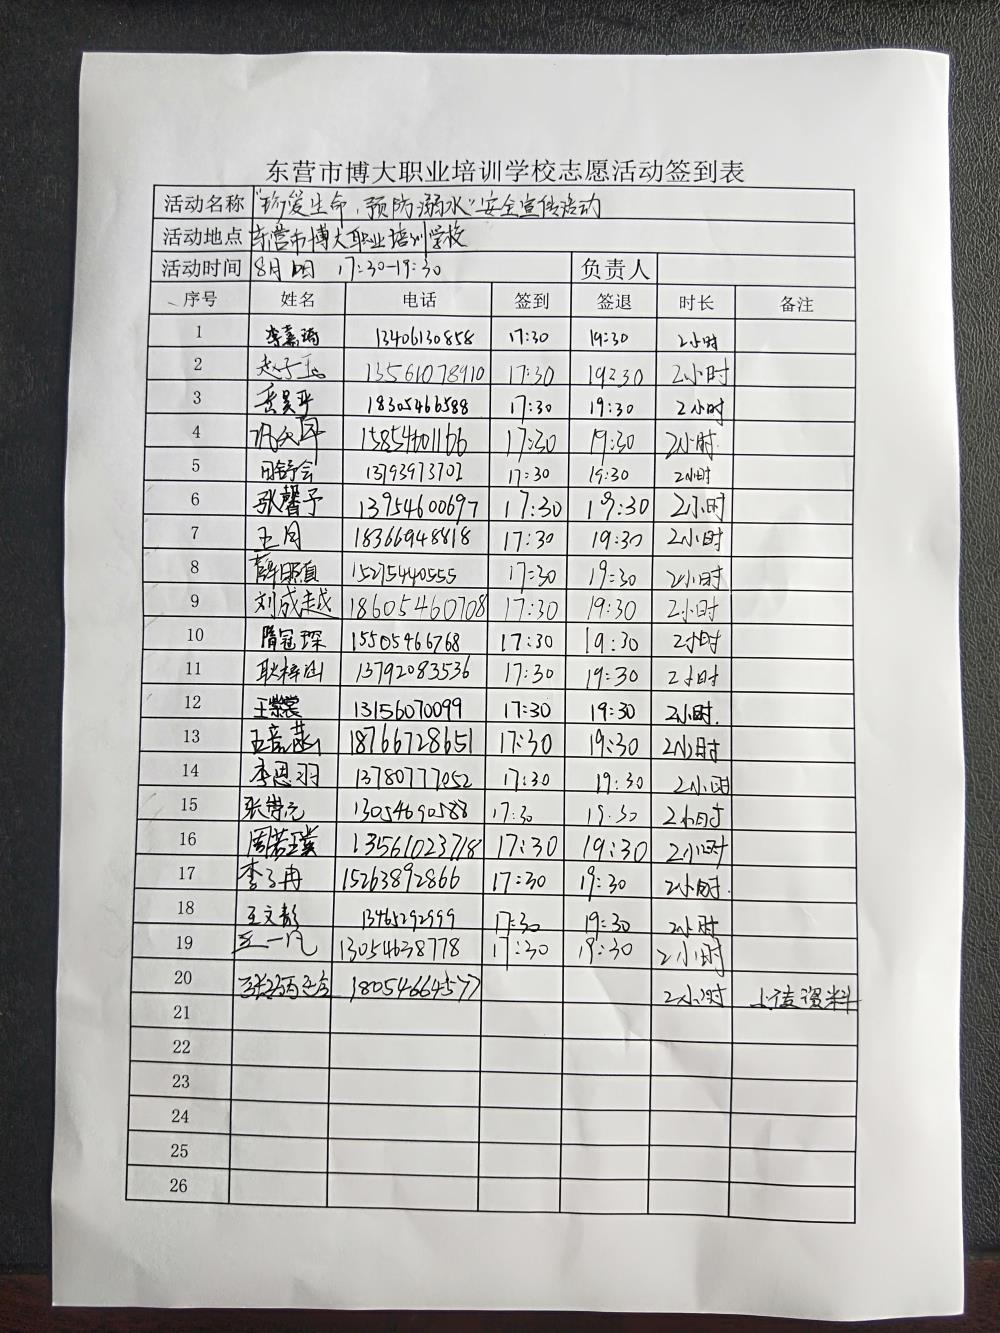 东营市博大职业培训学校志愿活动签到表
活动名称 "珍爱生命,预防溺水"安全宣传活动
活动地点 东营市博大职业培训学校
活动时间 8月 17:30-19:30 负责人
序号 姓名 电话 签到 签退 时长 备注
1 李嘉琦 13406130858 17:30 19:30 2小时
2 赵子玉 13561078910 17:30 19:30 2小时
3 岳昊平 18305466588 17:30 19:30 2小时
4 15854601166 17:30 19:30 2小时.
5 田舒会 13793973702 17:30 19:30 2小时
6 张馨予 13954600697 17:30 19:30 2小时
7 王月 18366948818 17:30 19:30 2小时
8 15275440555 17:30 19:30 2小时
9 刘成越 18605460708 17:30 19:30 2小时
10 隋冠琛 15505466768 17:30 19:30 2小时
11 耿梓涵 13792083536 17:30 19:30 2小时
12 王紫裳 13156070099 17:30 19:30 2小时.
13 18766728651 17:30 19:30 2小时
14 李恩羽 13780777052 17:30 19:30 2小时
15 张崇元 13054690588 17:30 19:30 2小时
16 周若冀 13561023718 17:30 19:30 2小时
17 李子冉 15263892866 17:30 19:30 2小时.
18 王文彭 13465292999 17:30 19:30 2小时
19 王一凡 13054638778 17:30 19:30 2小时
20 18054664577 2小时 上传资料
21
22
23
24
25
26